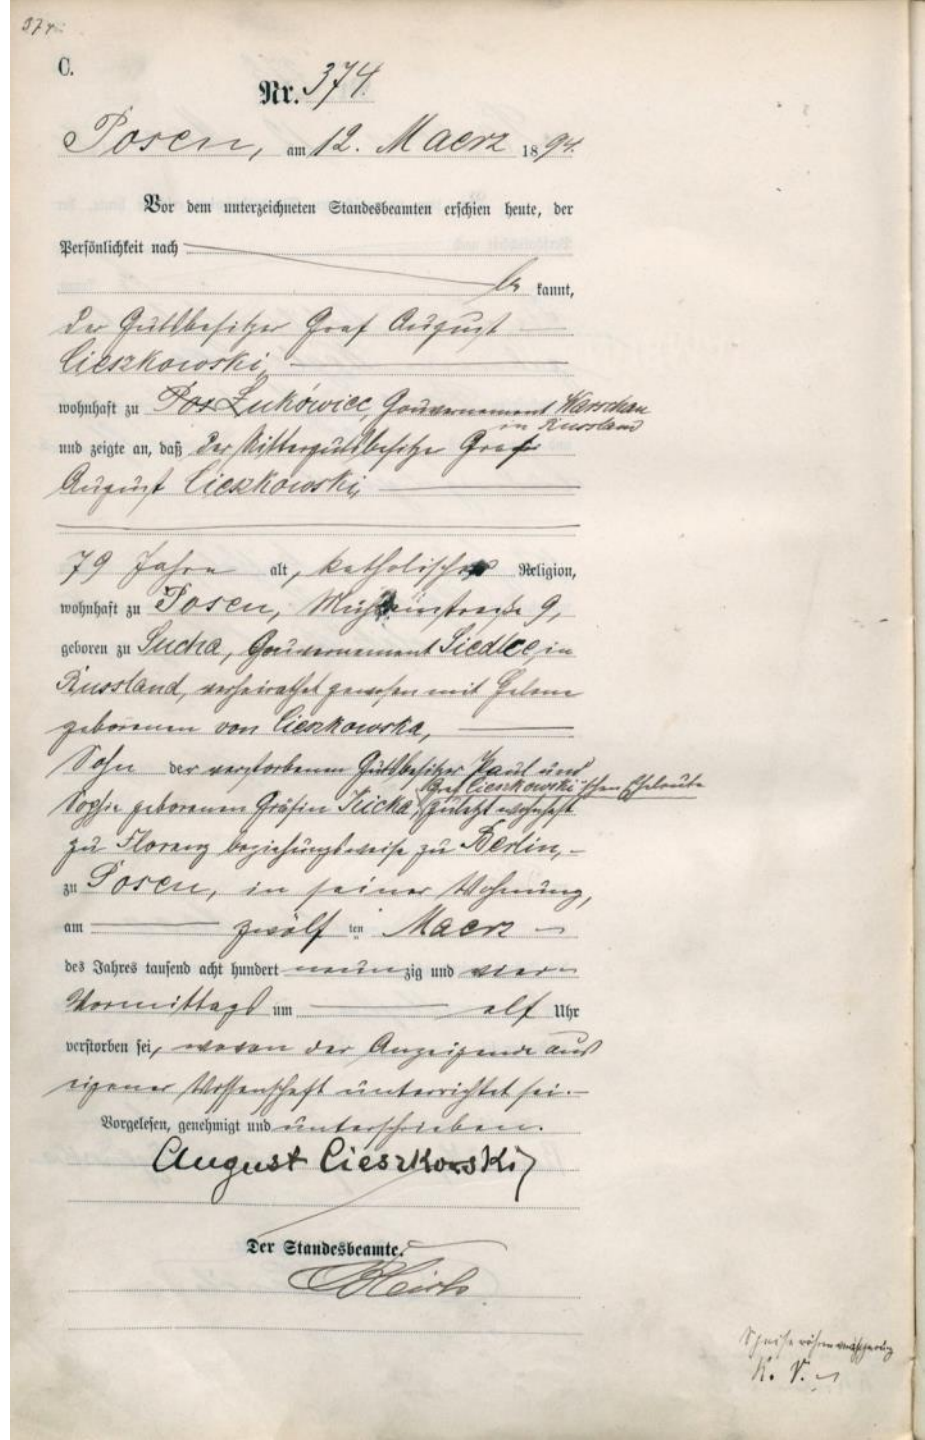 374
C.
Nr. 374.
Posen, am 12. Maerz 1894.
Vor dem unterzeichneten Standesbeamten erschien heute, der
Persönlichkeit nach
be kannt,
der Gutsbesitzer Graf August
Cieszkowski,
wohnhaft zu Pos Zukówiec, Gouvernement Warschau
in Russland
und zeigte an, daß der Rittergutsbesitzer Graf
August Cieszkowski,
79 Jahre alt, katholischer Religion,
wohnhaft zu Posen, Mühlenstraße 9,
geboren zu Sucha, Gouvernement Siedlce, in
Russland, verheirathet gewesen mit Helene
geborenen von Cieszkowska,
Sohn der verstorbenen Gutsbesitzer Paul und
Graf Cieszkowski'schen Eheleute
Sophie geborenen Gräfin Kicka, zuletzt wohnhaft
zu Florenz beziehungsweise zu Berlin,
zu Posen, in seiner Wohnung,
am zwölf ten Maerz
des Jahres tausend acht hundert neunzig und vier
Vormittags um elf Uhr
verstorben sei, wovon der Anzeigende aus
eigener Wissenschaft unterrichtet sei.
Vorgelesen, genehmigt und unterschrieben.
August Cieszkowski
Der Standesbeamte.
K. V.